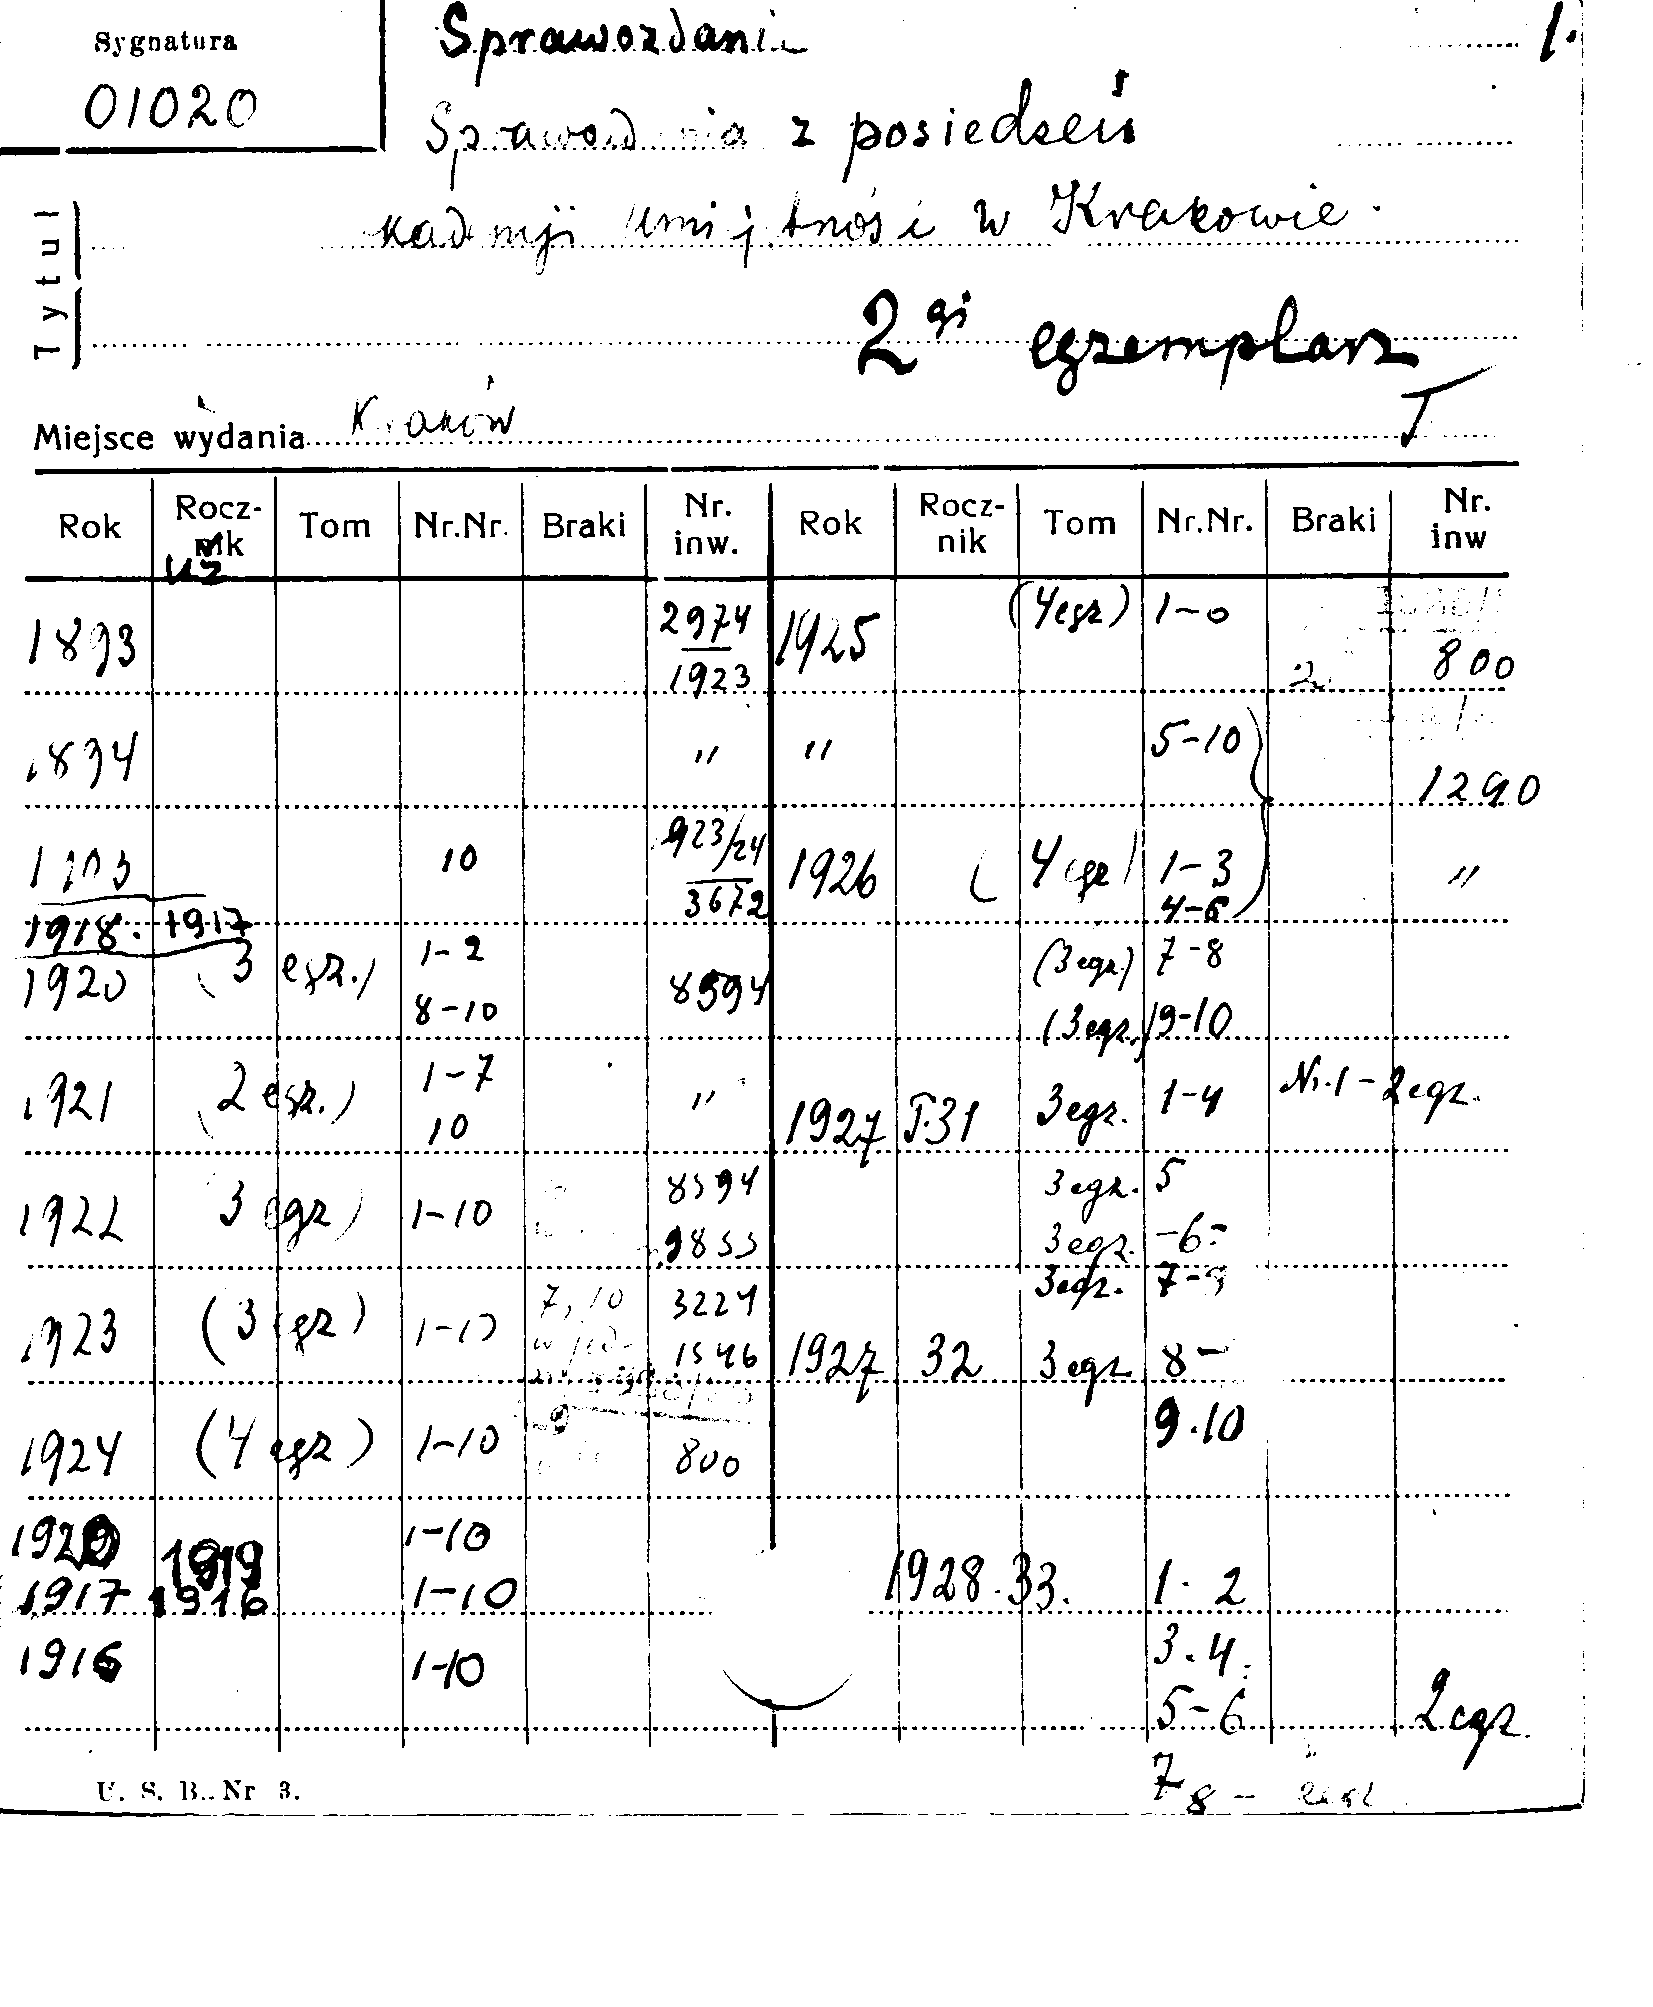 Sygnatura
01020
1.
Sprawozdania
Sprawozdania z posiedzeń
kademji Umiejętności w Krakowie.
Tytuł
2gi egzemplarz
Miejsce wydania Kraków
Rok Rocznik Tom Nr.Nr. Braki Nr. inw. Rok Rocznik Tom Nr.Nr. Braki Nr. inw
1893 2974/1923 1925 (4egz) 800
1894 " " 5-10 1290
1903 10 923/24 3672 1926 (4egz) 1-3 "
4-6
1918. 1917
1920 (3 egz.) 1-2 8594 (3egz.) 7-8
8-10 (3egz.) 9-10
1921 (2 egz.) 1-7 " 1927 T.31 3egz. 1-4 Nr.1-2egz.
10
1922 3 egz) 1-10 8594 3egz. 5
9855 3egz. -6-
3egz.
1923 (3 egz) 1-10 7, 10 3224
1546 1927 32 3egz 8-
9.10
1924 (4 egz) 1-10 800
1920 1919 1-10
1917 1916 1-10 1928. 33. 1. 2
1916 1-10 3.4.
5-6 2egz.
7 8 - 2egz
U. S. B. Nr 3.